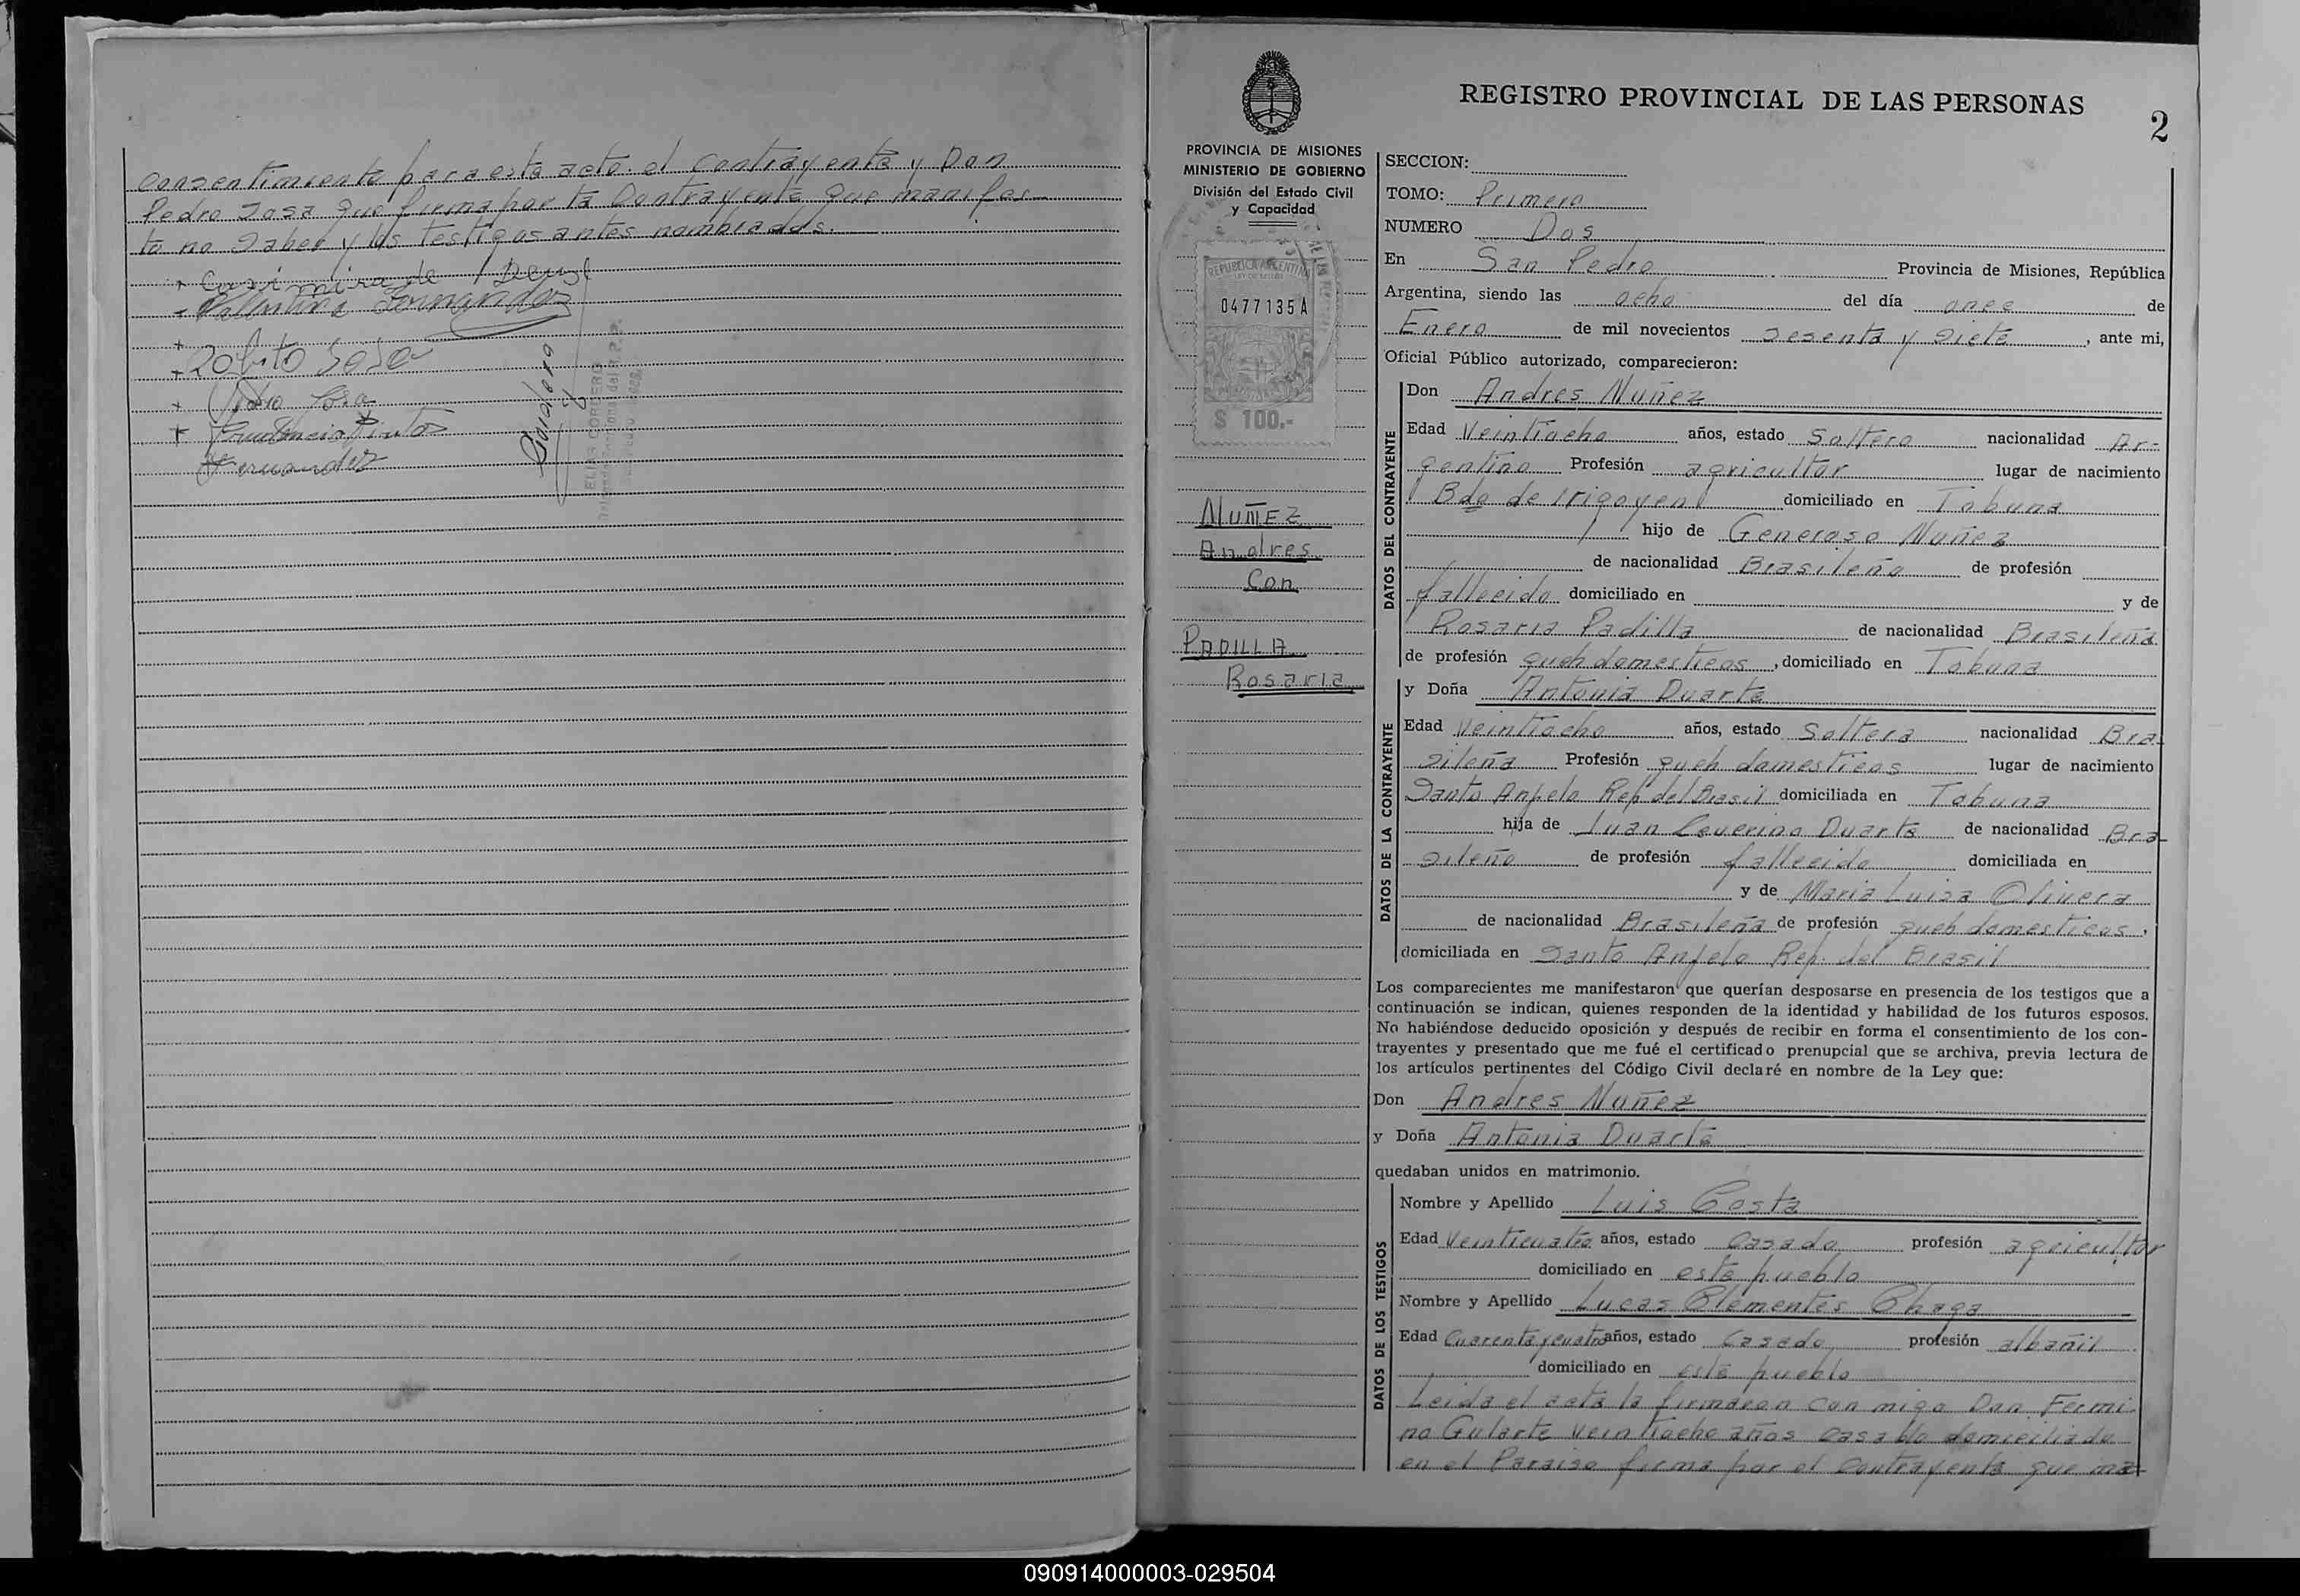 consentimiento para este acto el contrayente y Don
Pedro Sosa que firma por la Contrayente que manifes-
ta no saber y los testigos antes nombrados.
Roberto Sosa
Pedro Sosa
Prudencio Pintos
Fernandez
Cordero
ELIAS CORDERO
REGISTRO PROVINCIAL DE LAS PERSONAS
2
PROVINCIA DE MISIONES
MINISTERIO DE GOBIERNO
División del Estado Civil
y Capacidad
REPUBLICA ARGENTINA
0477135A
$ 100.-
NUÑEZ
Andres
Con
PADILLA
Rosaria
SECCION:
TOMO: Primero
NUMERO Dos
En San Pedro Provincia de Misiones, República
Argentina, siendo las ocho del día once de
Enero de mil novecientos sesenta y siete, ante mi,
Oficial Público autorizado, comparecieron:
DATOS DEL CONTRAYENTE
Don Andres Nuñez
Edad Veintiocho años, estado Soltero nacionalidad Ar-
gentino Profesión agricultor lugar de nacimiento
Bdo de Irigoyen domiciliado en Tobuna
hijo de Generoso Nuñez
de nacionalidad Brasileño de profesión
fallecido domiciliado en y de
Rosaria Padilla de nacionalidad Brasileña
de profesión queh domesticos, domiciliado en Tobuna
DATOS DE LA CONTRAYENTE
y Doña Antonia Duarte
Edad Veintiocho años, estado Soltera nacionalidad Bra-
sileña Profesión queh domesticos lugar de nacimiento
Santo Angelo Rep. del Brasil domiciliada en Tobuna
hija de Juan Severino Duarte de nacionalidad Bra-
sileño de profesión fallecido domiciliada en
y de Maria Luisa Olivera
de nacionalidad Brasileña de profesión queh domesticos,
domiciliada en Santo Angelo Rep. del Brasil
Los comparecientes me manifestaron que querían desposarse en presencia de los testigos que a
continuación se indican, quienes responden de la identidad y habilidad de los futuros esposos.
No habiéndose deducido oposición y después de recibir en forma el consentimiento de los con-
trayentes y presentado que me fué el certificado prenupcial que se archiva, previa lectura de
los artículos pertinentes del Código Civil declaré en nombre de la Ley que:
Don Andres Nuñez
y Doña Antonia Duarte
quedaban unidos en matrimonio.
DATOS DE LOS TESTIGOS
Nombre y Apellido Luis Costa
Edad Veinticuatro años, estado Casado profesión agricultor
domiciliado en este pueblo
Nombre y Apellido Lucas Clementes Chaga
Edad Cuarenta y cuatro años, estado Casado profesión albañil
domiciliado en este pueblo
Leida el acta la firmaron con migo Don Fermi-
no Gularte veintiocho años casado domiciliado
en el Paraiso firma por el contrayente que ma-
090914000003-029504